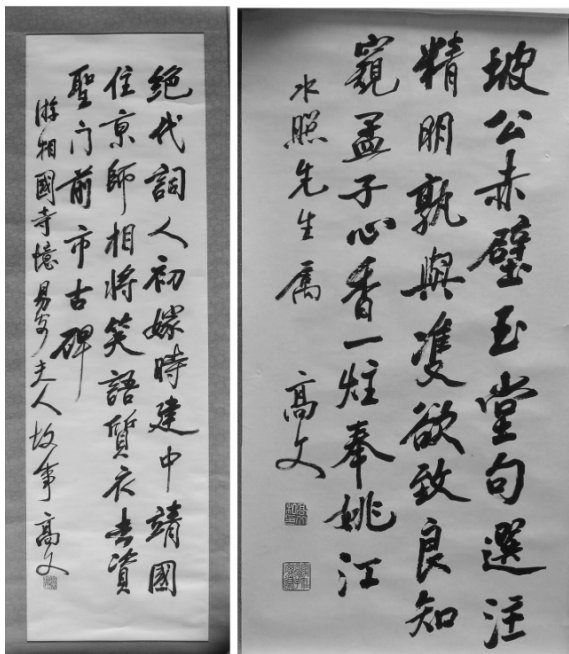 絕代詞人初嫁時建中靖國
住京師相將笑語質衣去資
聖门前市古碑
游相國寺憶易安夫人故事 高文
坡公赤壁玉堂句選注
精明孰與雙欲致良知
窺孟子心香一炷奉姚江
水照先生属 高文